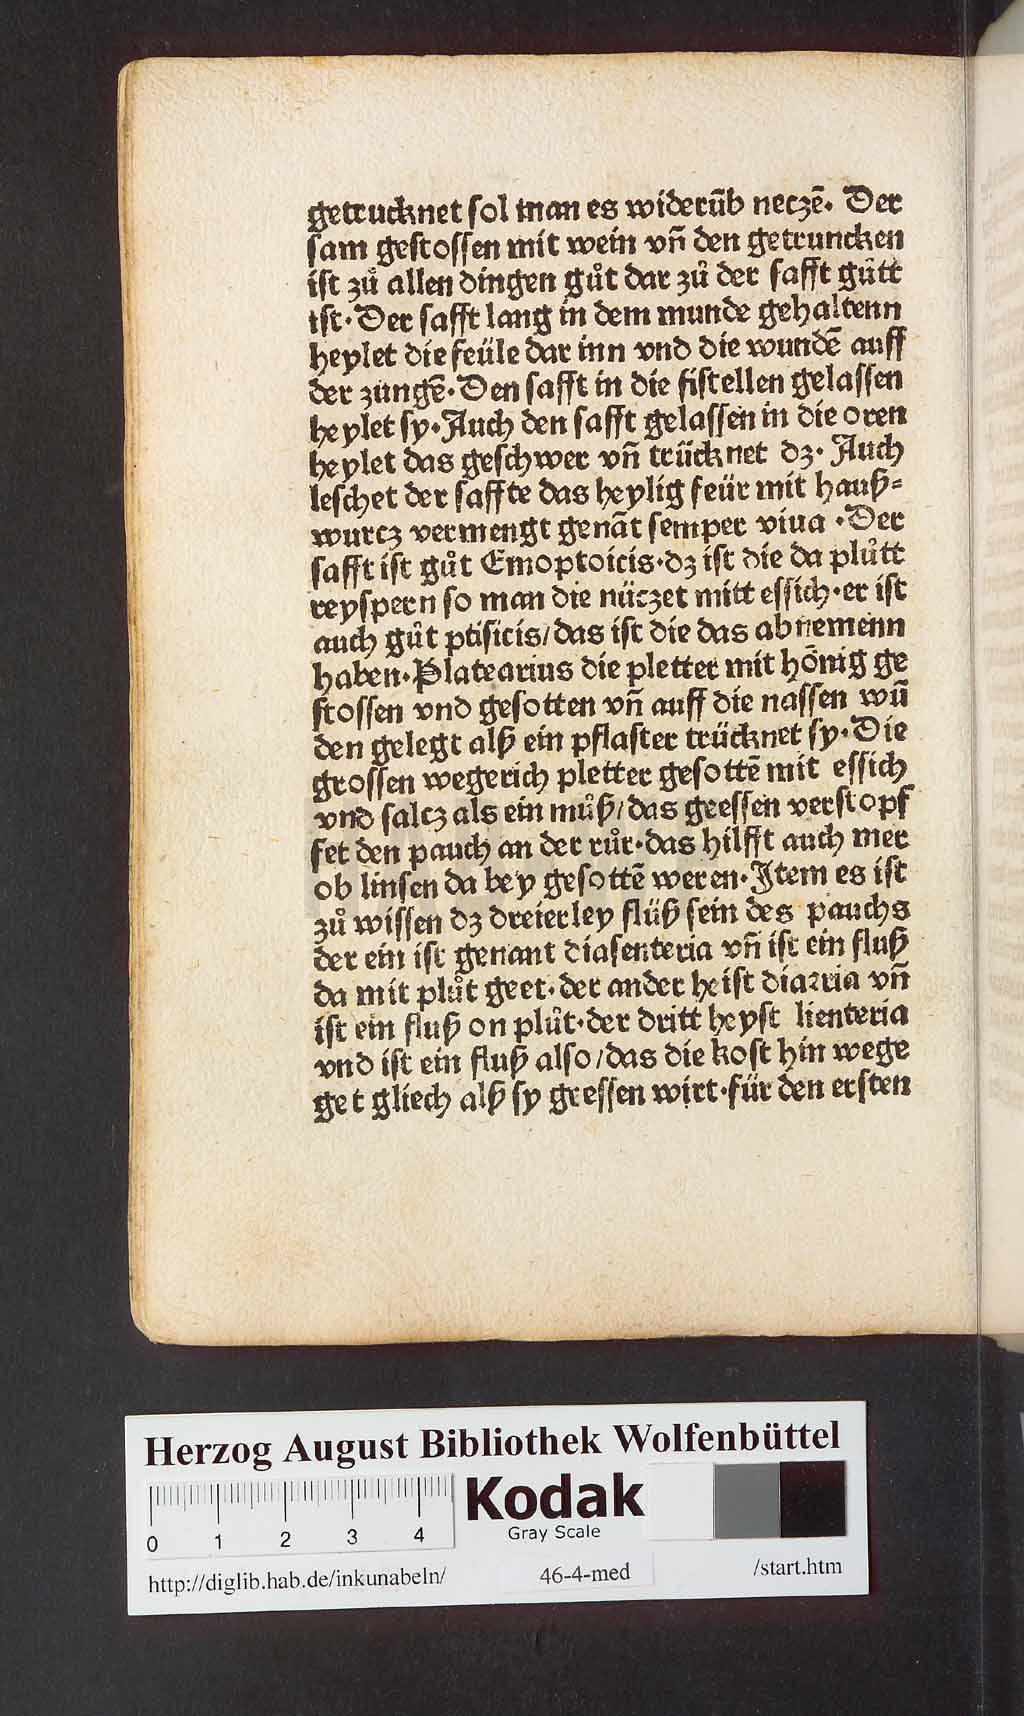 getrucknet sol man es widerūb neczē. Der
sam gestossen mit wein vñ den getruncken
ist zů allen dingen gůt dar zů der safft gůtt
ist. Der safft lang in dem munde gehaltenn
heylet die feüle dar inn vnd die wundē auff
der zungē. Den safft in die fistellen gelassen
heylet sy. Auch den safft gelassen in die oren
heylet das geschwer vñ trücknet dz. Auch
leschet der saffte das heylig feür mit hauß=
wurcz vermengt genāt semper viua. Der
safft ist gůt Emoptoicis. dz ist die da plůtt
reyspern so man die nüczet mitt essich. er ist
auch gůt ptisicis/ das ist die das abnemenn
haben. Platearius die pletter mit hönig ge
stossen vnd gesotten vñ auff die nassen wū
den gelegt alß ein pflaster trücknet sy. Die
grossen wegerich pletter gesottē mit essich
vnd salcz als ein můß/ das geessen verstopf
fet den pauch an der růr. das hilfft auch mer
ob linsen da bey gesottē weren. Item es ist
zů wissen dz dreierley flüß sein des pauchs
der ein ist genant diasenteria vñ ist ein fluß
da mit plůt geet. der ander heist diarria vñ
ist ein fluß on plůt. der dritt heyst lienteria
vnd ist ein fluß also/ das die kost hin wege
get gliech alß sy gressen wirt. für den ersten
Herzog August Bibliothek Wolfenbüttel
0 1 2 3 4
Kodak
Gray Scale
http://diglib.hab.de/inkunabeln/ 46-4-med /start.htm